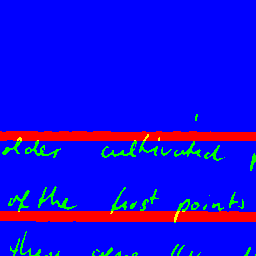 older cultivated
of the first points
they